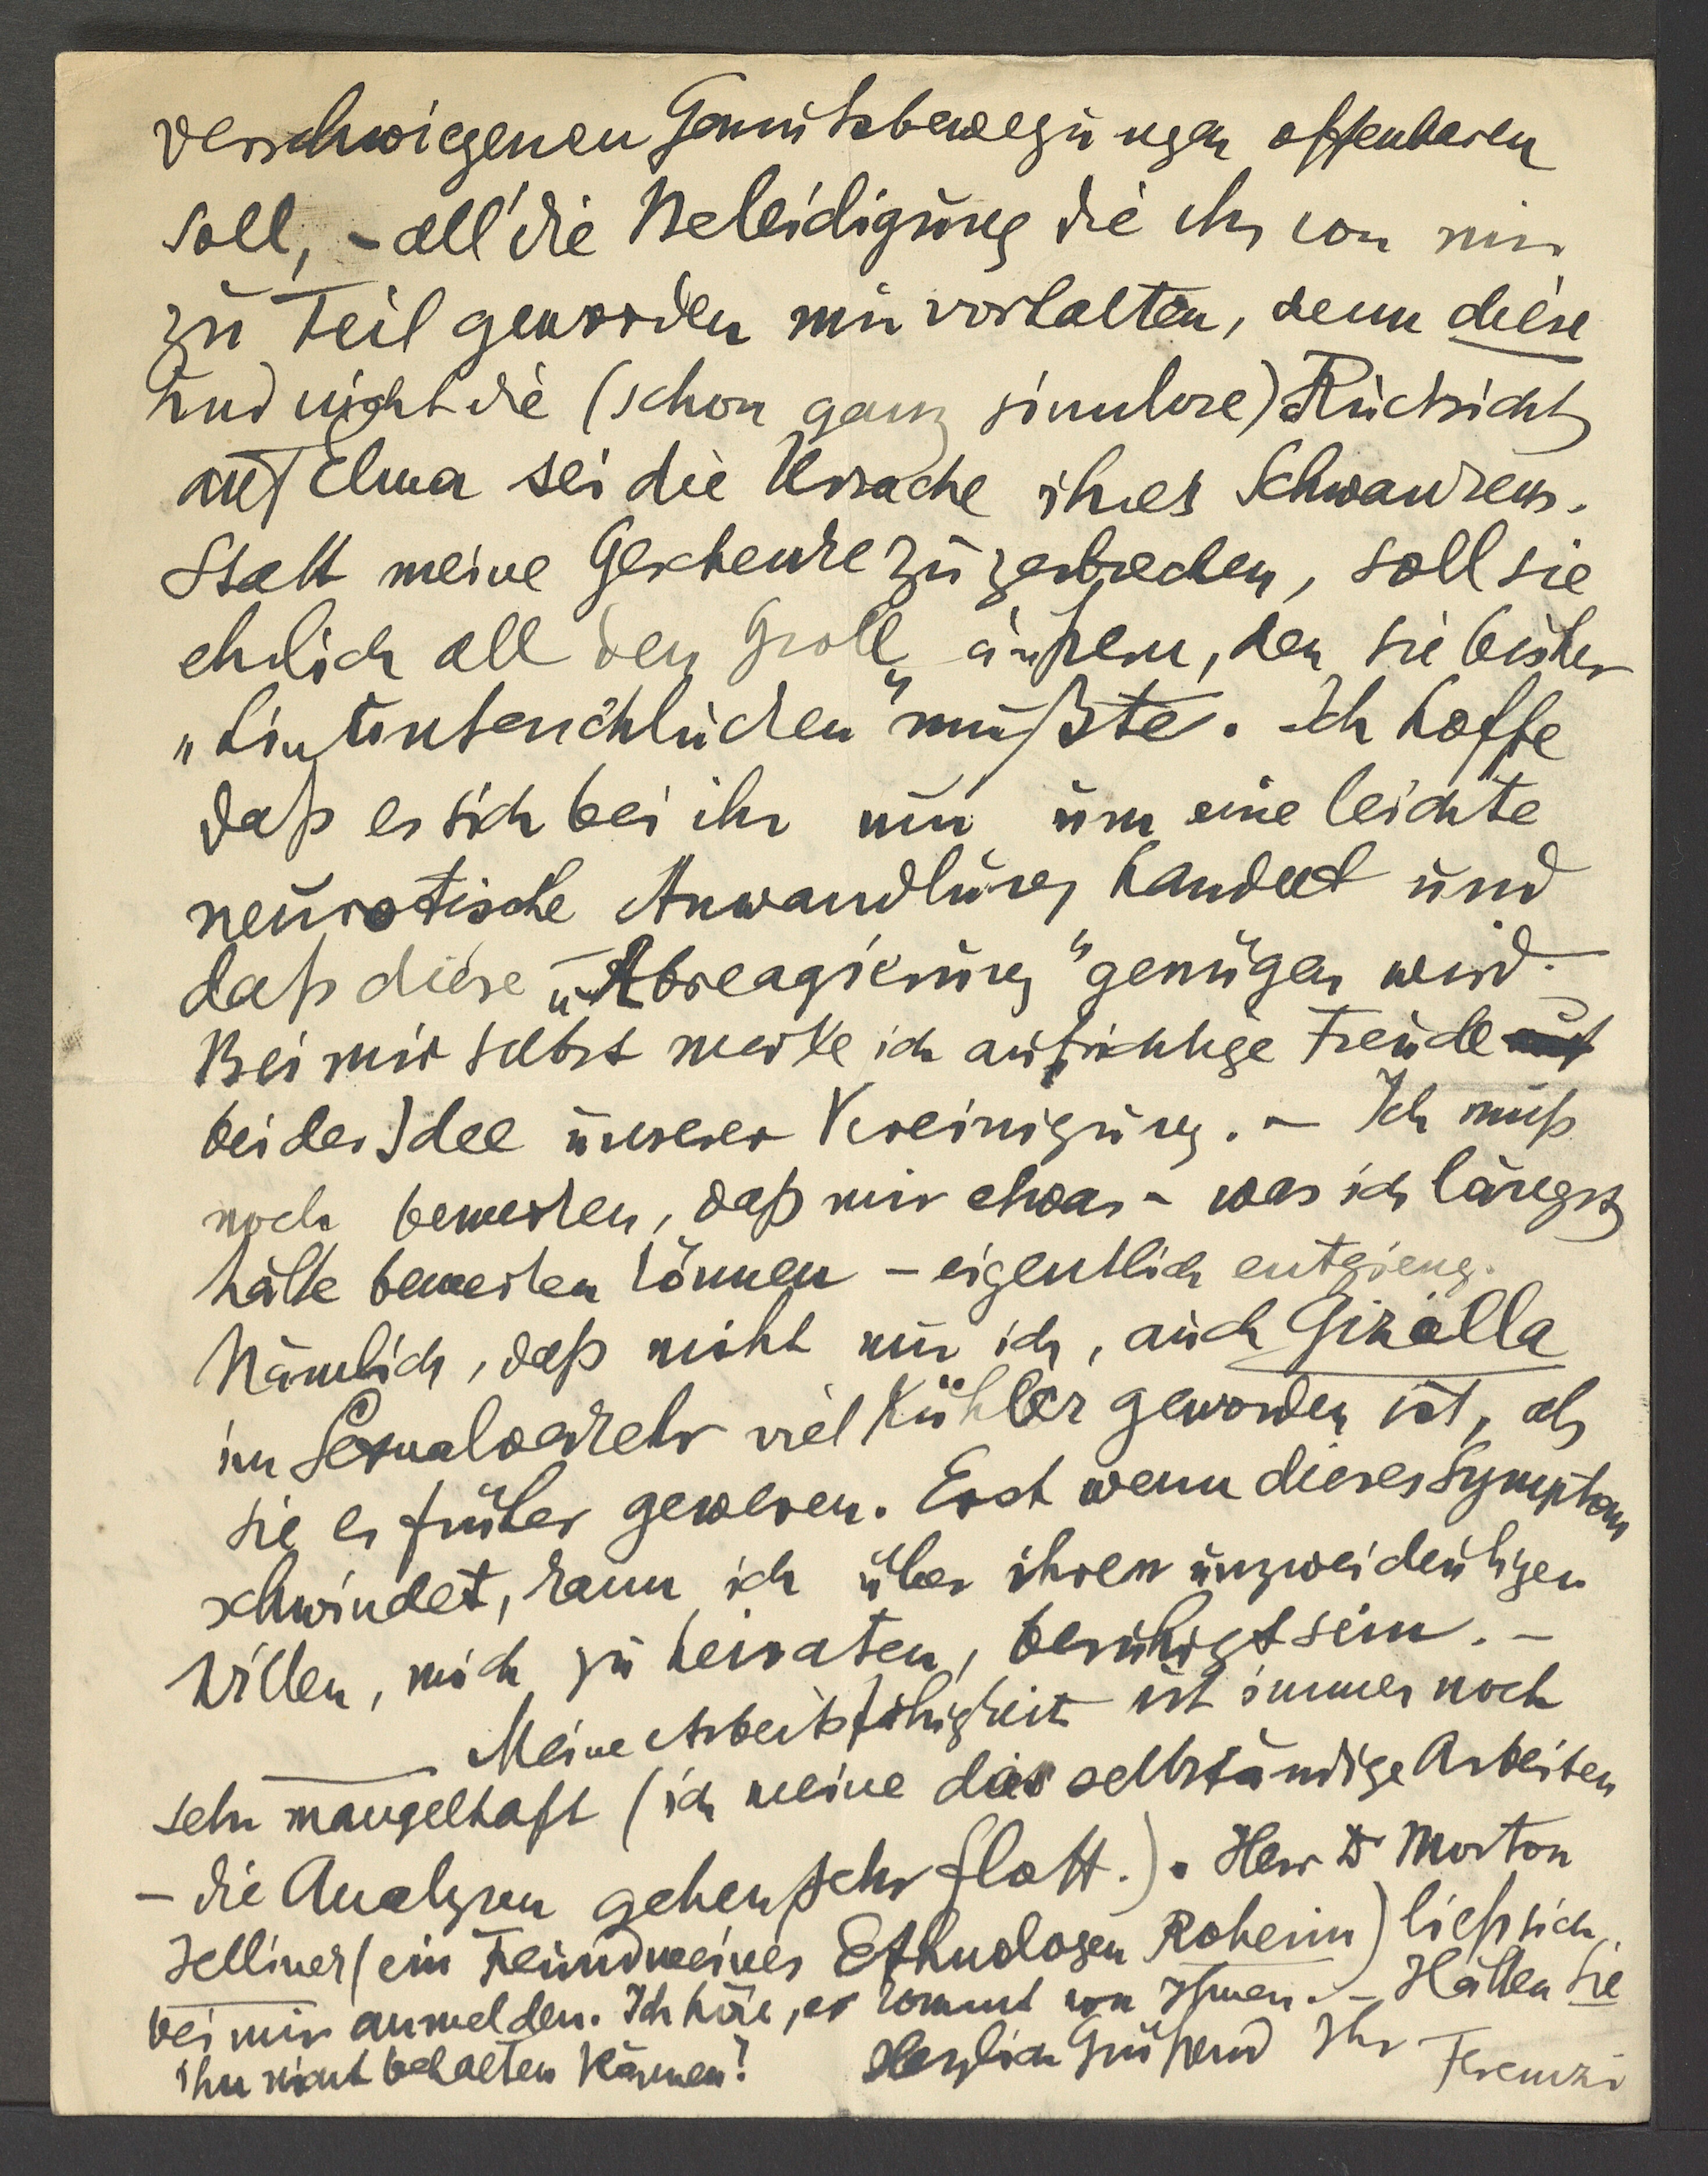 verschwiegenen Gemütsbewegungen offenbaren
soll, – all' die Beleidigung die ihr von mir
zu Teil geworden mir vorhalten, denn diese
und nicht die (schon ganz sinnlose) Rücksicht
auf Elma sei die Ursache ihres Schwankens.
Statt meine Geschenke zu zerbrechen, soll sie
ehrlich all den Groll äußern, den sie bisher
„hinunterschlucken" mußte. Ich hoffe
daß es sich bei ihr nur um eine leichte
neurotische Anwandlung handelt und
daß diese „Abreagierung" genügen wird. –
Bei mir selbst merke ich aufrichtige Freude
bei der Idee unserer Vereinigung. – Ich muß
noch bemerken, daß mir etwas – was ich längst
hätte bemerken können – eigentlich entgieng.
Nämlich, daß nicht nur ich, auch Gizella
im Sexualverkehr viel kühler geworden ist, als
sie es früher gewesen. Erst wenn dieses Symptom
schwindet, kann ich über ihren unzweideutigen
Willen, mich zu heiraten, beruhigt sein. –
Meine Arbeitsfähigkeit ist immer noch
sehr mangelhaft (ich meine das selbständige Arbeiten
– die Analysen gehen sehr flott.). Herr Dr Morton
Jellinek (ein Freund meines Ethnologen Roheim) ließ sich
bei mir anmelden. Ich höre, er kommt von Ihnen. – Hätten Sie
ihn nicht behalten können?   Herzlich grüßend Ihr Ferenczi